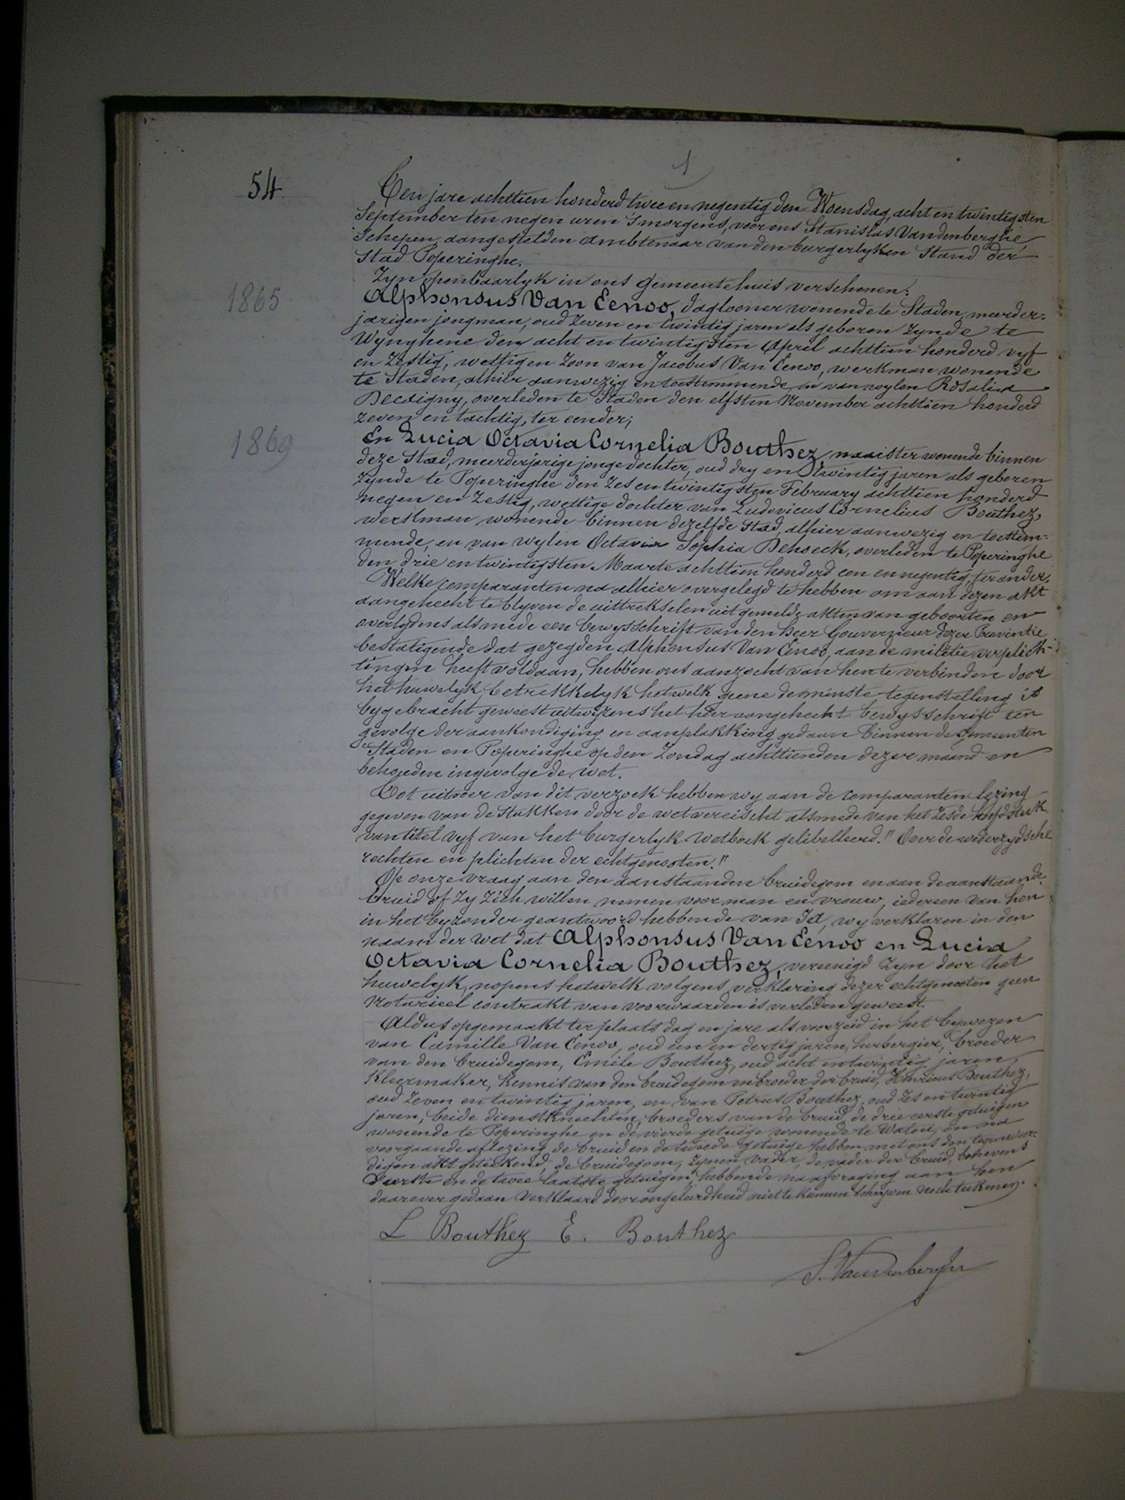 1
54
Ten jare achttien honderd twee en negentig den Woensdag, acht en twintigsten
September ten negen uren 's morgens, voor ons Stanislas Vandenberghe,
Schepen, aangestelden ambtenaar van den burgerlyken Stand der
Stad Poperinghe.
Zyn openbaarlyk in ons gemeentehuis verschenen:
1865
Alphonsus Van Eenoo, daglooner wonende te Staden, meerder-
jarigen jongman, oud zeven en twintig jaren als geboren zynde te
Wynghene den acht en twintigsten April achttien honderd vyf
en zestig, wettigen zoon van Jacobus Van Eenoo, werkman wonende
te Staden, alhier aanwezig en toestemmende, en van wylen Rosalia
overleden te Staden den elfsten November achttien honderd
zeven en tachtig, ter eender;
1869
En Lucia Octavia Cornelia Bouthez, naaister wonende binnen
deze Stad, meerderjarige jonge dochter, oud dry en twintig jaren als geboren
zynde te Poperinghe den zes en twintigsten February achttien honderd
negen en zestig, wettige dochter van Ludovicus Cornelius Bouthez,
werkman wonende binnen dezelfde Stad, alhier aanwezig en toestem-
mende, en van wylen Octavia Sophia Dehoeck, overleden te Poperinghe
den drie en twintigsten Maarte achttien honderd een en negentig, ter ander;
Welke comparanten na alhier overgelegd te hebben om aan dezen akt
aangehecht te blyven de uittrekselen uit gemelde akten van geboorten en
overlydens alsmede een bewysschrift van den Heer Gouverneur dezer Provintie
bestatigende dat gezegden Alphonsus Van Eenoo, aan de militie verplich-
tingen heeft voldaan, hebben ons aanzocht van hen te verbinden door
het huwelyk betrekkelyk hetwelk geene de minste tegenstelling is
bygebracht geweest uitwyzens het hier aangehecht bewysschrift ten
gevolge der aankondiging en aanplakking gedaan binnen de gemeenten
Staden en Poperinghe op den Zondag achttienden dezer maand en
behoeden ingevolge de wet.
Tot uitvoer van dit verzoek hebben wy aan de comparanten lezing
gegeven van de stukken door de wet vereischt alsmede van het zesde hoofdstuk
van titel vyf van het burgerlyk Wetboek gelibelleerd: "Over de wederzydsche
rechten en plichten der echtgenooten."
Op onze vraag aan den aanstaanden bruidegom en aan de aanstaande
bruid of zy zich willen nemen voor man en vrouw, iedereen van hen
in het byzonder geantwoord hebbende van Ja, wy verklaren in den
naam der Wet dat Alphonsus Van Eenoo en Lucia
Octavia Cornelia Bouthez, vereenigd zyn door het
huwelyk, nopens hetwelk volgens verklaring dezer echtgenooten geen
Notarieel contrakt van voorwaarden is verleden geweest.
Aldus opgemaakt ter plaats dag en jare als voorzeid in het bywezen
van Camille Van Eenoo, oud een en dertig jaren, herbergier, broeder
van den bruidegom, Emile Bouthez, oud acht en twintig jaren,
Kleermaker, kennis van den bruidegom en broeder der bruid, Henricus Bouthez,
oud zeven en twintig jaren, en van Petrus Bouthez, oud zes en twintig
jaren, beide dienstknechten, broeders van de bruid, de drie eerste getuigen
wonende te Poperinghe en de vierde getuige wonende te Watou, en na
voorgaande aflezing de bruid en de tweede getuige hebben met ons den tegenwoor-
digen akt geteekend, de bruidegom, zynen vader, de vader der bruid, benevens
eerste en de twee laatste getuigen, hebbende na afvraging aan hen
daarover gedaan verklaard door ongeleerdheid niet te kunnen schryven noch teekenen.
L Bouthez E. Bouthez
S. Vandenberghe